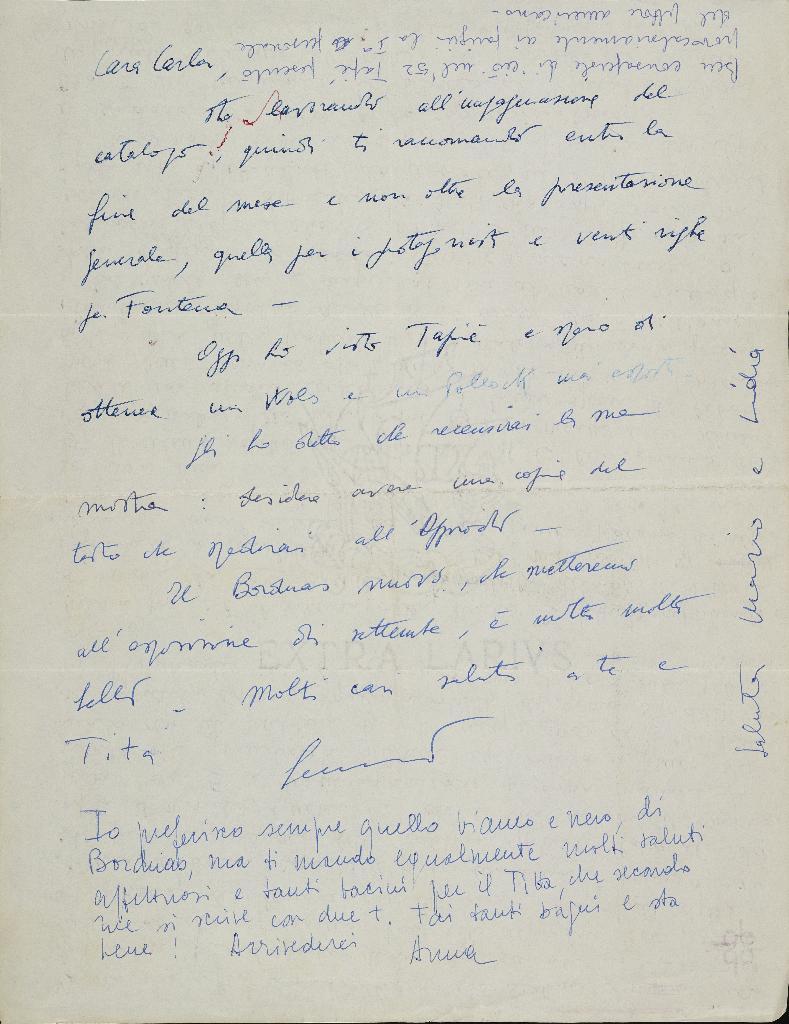 Cara Carla,
sto lavorando all'impaginazione del
catalogo, quindi ti raccomando entro la
fine del mese e non oltre la presentazione
generale, quella per i protagonisti e venti righe
per Fontana —
Oggi ho visto Tapié e spero di
ottenere un Wols e un Pollock mai esposti
gli ho detto che recensirai la sua
mostra : desidera avere una copia del
testo che spedirai all'Approdo —
Il Borduas nuovo, che metteremo
all'esposizione di settembre, è molto molto
bello — Molti cari saluti a te e
Tita
Io preferisco sempre quello bianco e nero, di
Borduas, ma ti mando egualmente molti saluti
affettuosi e tanti bacini per il Titta, che secondo
me si scrive con due t. Fai tanti bagni e sta
bene ! Arrivederci Anna
Saluta Mario e Lidia
Ben consapevole di ciò nel '52 Tapié presentò
provocatoriamente ai parigini la Iª personale
del pittore americano —
EXTRA LAPIVS